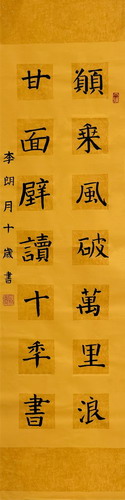 願乗風破萬里浪
甘面壁讀十年書
李朗月十歲書